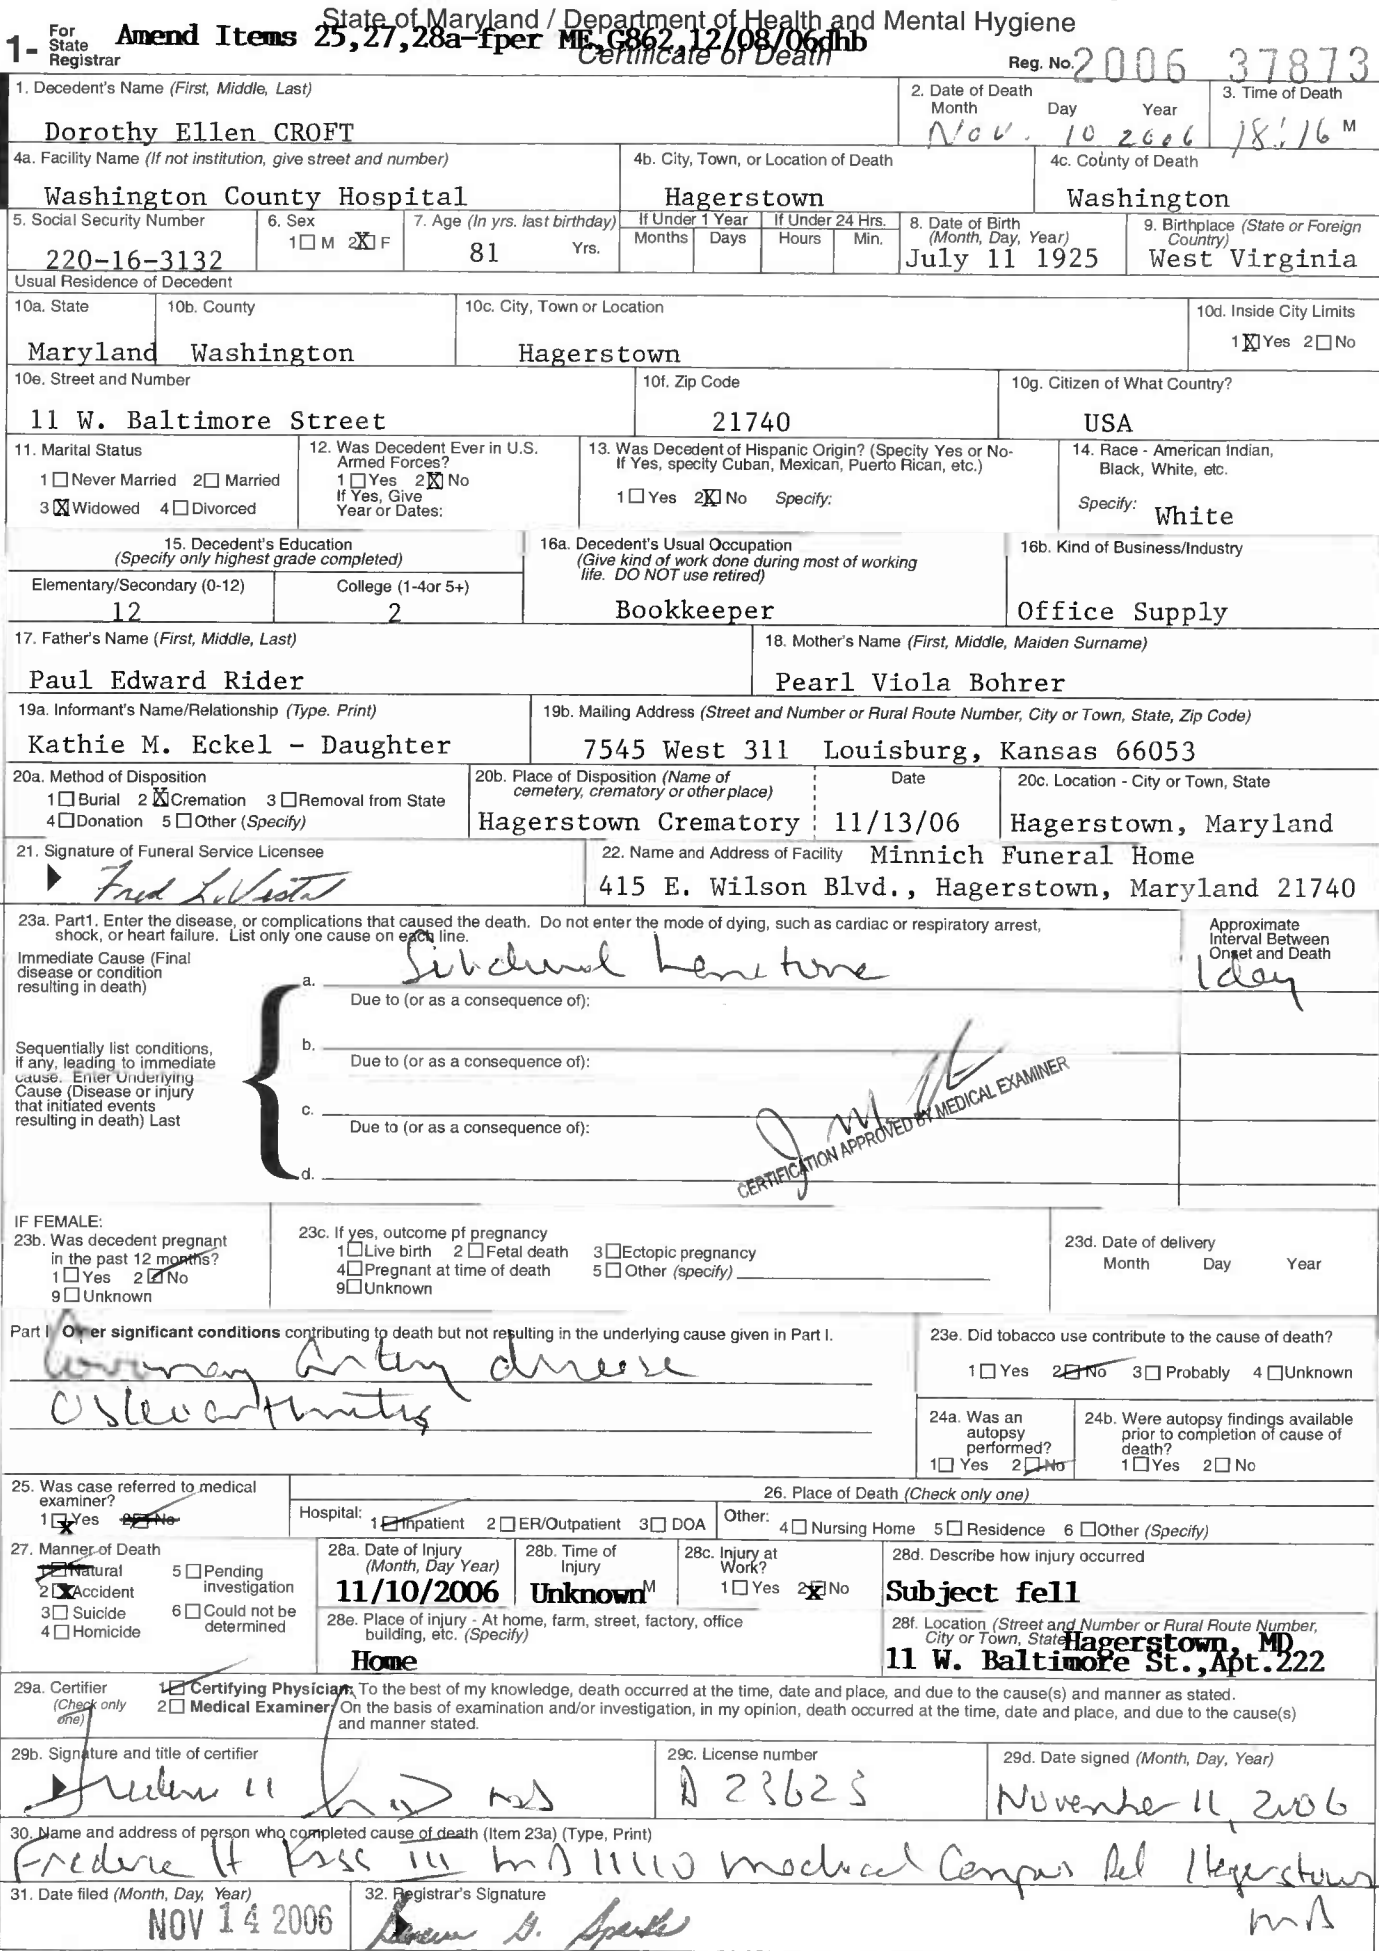 State of Maryland / Department of Health and Mental Hygiene
1- For State Registrar
Amend Items 25,27,28a-fper ME,G862,12/08/06dhb
Certificate of Death
Reg. No. 2006 37873
1. Decedent's Name (First, Middle, Last)
Dorothy Ellen CROFT
2. Date of Death
Month Day Year
Nov. 10 2006
3. Time of Death
18:16 M
4a. Facility Name (If not institution, give street and number)
Washington County Hospital
4b. City, Town, or Location of Death
Hagerstown
4c. County of Death
Washington
5. Social Security Number
220-16-3132
6. Sex
1 M 2X F
7. Age (In yrs. last birthday)
81 Yrs.
If Under 1 Year
Months Days
If Under 24 Hrs.
Hours Min.
8. Date of Birth
(Month, Day, Year)
July 11 1925
9. Birthplace (State or Foreign
Country)
West Virginia
Usual Residence of Decedent
10a. State
Maryland
10b. County
Washington
10c. City, Town or Location
Hagerstown
10d. Inside City Limits
1 X Yes 2 No
10e. Street and Number
11 W. Baltimore Street
10f. Zip Code
21740
10g. Citizen of What Country?
USA
11. Marital Status
1 Never Married 2 Married
3 X Widowed 4 Divorced
12. Was Decedent Ever in U.S.
Armed Forces?
1 Yes 2 X No
If Yes, Give
Year or Dates:
13. Was Decedent of Hispanic Origin? (Specify Yes or No-
If Yes, specify Cuban, Mexican, Puerto Rican, etc.)
1 Yes 2 X No Specify:
14. Race - American Indian,
Black, White, etc.
Specify: White
15. Decedent's Education
(Specify only highest grade completed)
Elementary/Secondary (0-12) College (1-4or 5+)
12 2
16a. Decedent's Usual Occupation
(Give kind of work done during most of working
life. DO NOT use retired)
Bookkeeper
16b. Kind of Business/Industry
Office Supply
17. Father's Name (First, Middle, Last)
Paul Edward Rider
18. Mother's Name (First, Middle, Maiden Surname)
Pearl Viola Bohrer
19a. Informant's Name/Relationship (Type. Print)
Kathie M. Eckel - Daughter
19b. Mailing Address (Street and Number or Rural Route Number, City or Town, State, Zip Code)
7545 West 311 Louisburg, Kansas 66053
20a. Method of Disposition
1 Burial 2 X Cremation 3 Removal from State
4 Donation 5 Other (Specify)
20b. Place of Disposition (Name of
cemetery, crematory or other place)
Hagerstown Crematory
Date
11/13/06
20c. Location - City or Town, State
Hagerstown, Maryland
21. Signature of Funeral Service Licensee
Fred L.
22. Name and Address of Facility Minnich Funeral Home
415 E. Wilson Blvd., Hagerstown, Maryland 21740
23a. Part1, Enter the disease, or complications that caused the death. Do not enter the mode of dying, such as cardiac or respiratory arrest,
shock, or heart failure. List only one cause on each line.
Approximate
Interval Between
Onset and Death
Immediate Cause (Final
disease or condition
resulting in death)
a. Subdural hematoma
1 day
Due to (or as a consequence of):
Sequentially list conditions,
if any, leading to immediate
cause. Enter Underlying
Cause (Disease or injury
that initiated events
resulting in death) Last
b.
Due to (or as a consequence of):
c.
Due to (or as a consequence of):
d.
CERTIFICATION APPROVED BY MEDICAL EXAMINER
IF FEMALE:
23b. Was decedent pregnant
in the past 12 months?
1 Yes 2 No
9 Unknown
23c. If yes, outcome pf pregnancy
1 Live birth 2 Fetal death 3 Ectopic pregnancy
4 Pregnant at time of death 5 Other (specify)
9 Unknown
23d. Date of delivery
Month Day Year
Part I Other significant conditions contributing to death but not resulting in the underlying cause given in Part I.
Coronary artery disease
Osteoarthritis
23e. Did tobacco use contribute to the cause of death?
1 Yes 2 No 3 Probably 4 Unknown
24a. Was an
autopsy
performed?
1 Yes 2 No
24b. Were autopsy findings available
prior to completion of cause of
death?
1 Yes 2 No
25. Was case referred to medical
examiner?
1 x Yes 2 No
26. Place of Death (Check only one)
Hospital: 1 Inpatient 2 ER/Outpatient 3 DOA Other: 4 Nursing Home 5 Residence 6 Other (Specify)
27. Manner of Death
1 Natural 5 Pending
investigation
2 X Accident
3 Suicide 6 Could not be
determined
4 Homicide
28a. Date of Injury
(Month, Day Year)
11/10/2006
28b. Time of
Injury
Unknown M
28c. Injury at
Work?
1 Yes 2 x No
28d. Describe how injury occurred
Subject fell
28e. Place of injury - At home, farm, street, factory, office
building, etc. (Specify)
Home
28f. Location (Street and Number or Rural Route Number,
City or Town, State) Hagerstown, MD
11 W. Baltimore St.,Apt.222
29a. Certifier
(Check only
one)
1 Certifying Physician: To the best of my knowledge, death occurred at the time, date and place, and due to the cause(s) and manner as stated.
2 Medical Examiner: On the basis of examination and/or investigation, in my opinion, death occurred at the time, date and place, and due to the cause(s)
and manner stated.
29b. Signature and title of certifier
MD
29c. License number
D 23623
29d. Date signed (Month, Day, Year)
November 11, 2006
30. Name and address of person who completed cause of death (Item 23a) (Type, Print)
Frederic H Kass III MD 11110 Medical Campus Rd Hagerstown
MD
31. Date filed (Month, Day, Year)
NOV 14 2006
32. Registrar's Signature